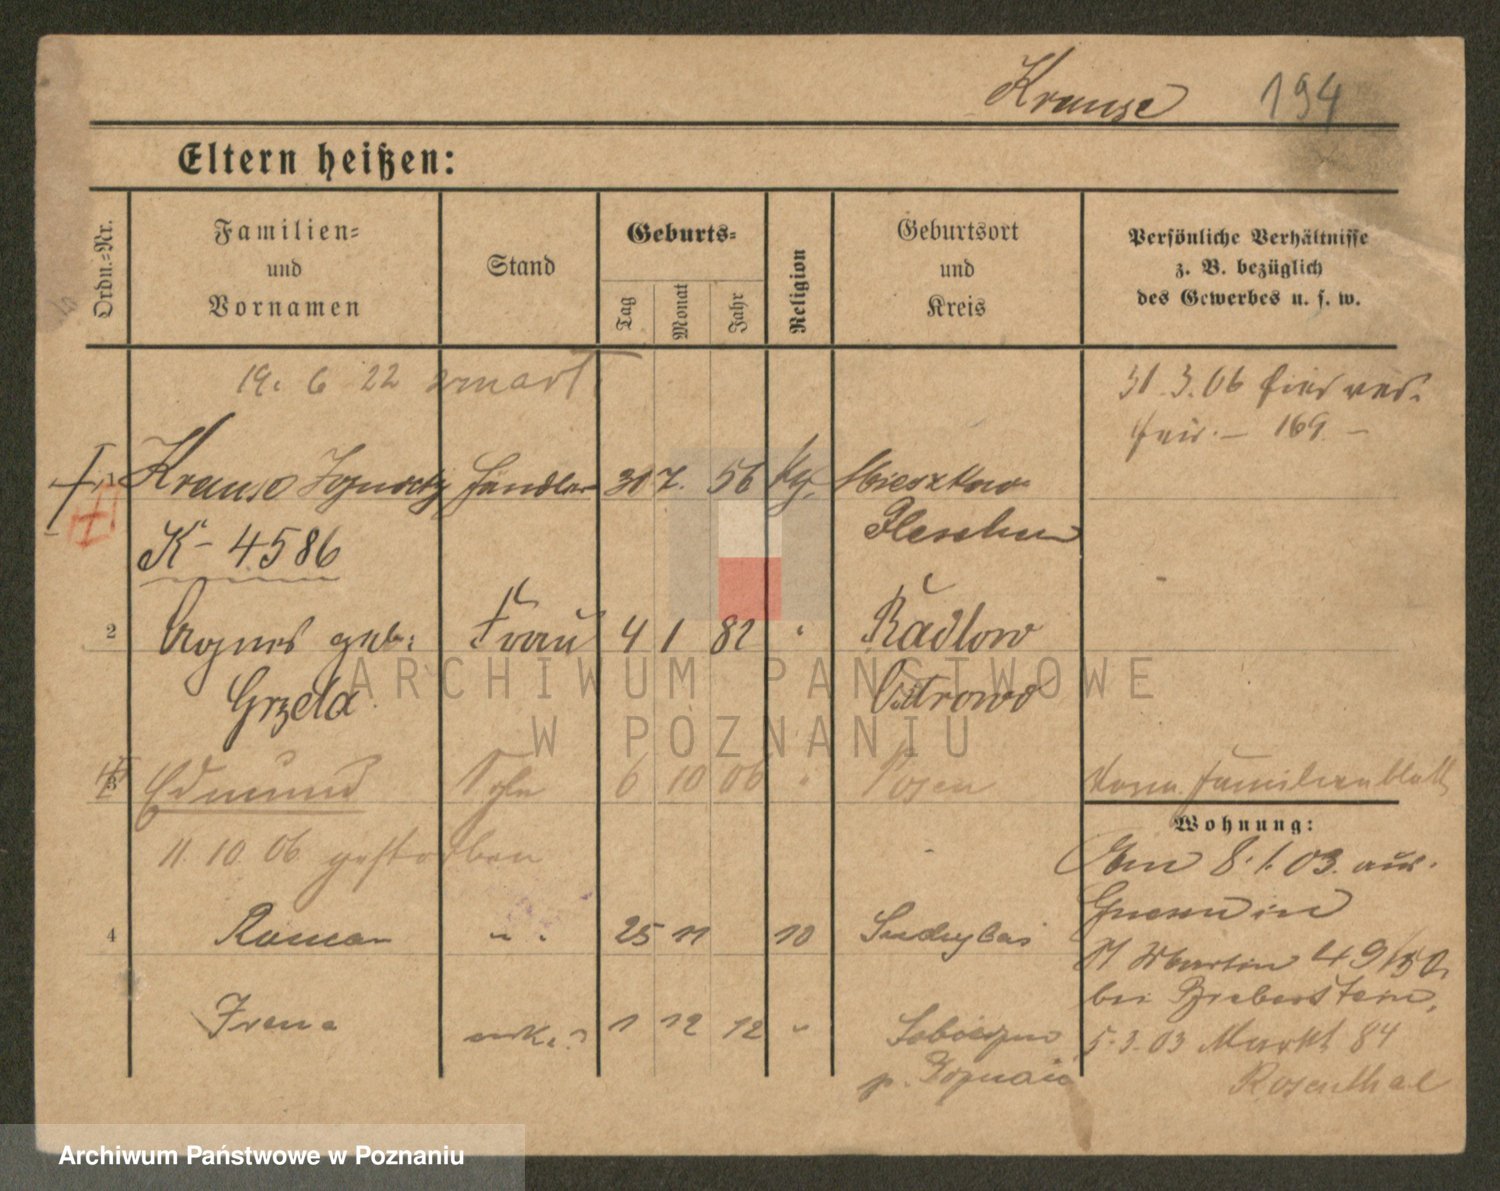 Krause 194
Eltern heißen:
Ordn.=Nr.
Familien=
und
Vornamen
Stand
Geburts=
Tag
Monat
Jahr
Religion
Geburtsort
und
Kreis
Persönliche Verhältnisse
z. B. bezüglich
des Gewerbes u. s. w.
19. 6 22 zmarł
31.3.06 hier
169. —
1 Krause Ignatz Händler 31 7. 56 kg. Mieszkow
Pleschen
K - 4586
2 Agnes geb. Frau 4 1 82 " Radlow
Grzela Ostrowo
3 Edmund Sohn 6 10 06 " Posen
Familienblatt
11. 10. 06 gestorben
Wohnung:
Am 8.1.03. aus
Gnesen in
4 Roman " 25 11 10
St Martin 49/50.
bei Bieberstein,
Irena 1 12 12 "
5.3.03 Markt 84
p. Poznań
Rosenthal
ARCHIWUM PAŃSTWOWE
W POZNANIU
Archiwum Państwowe w Poznaniu